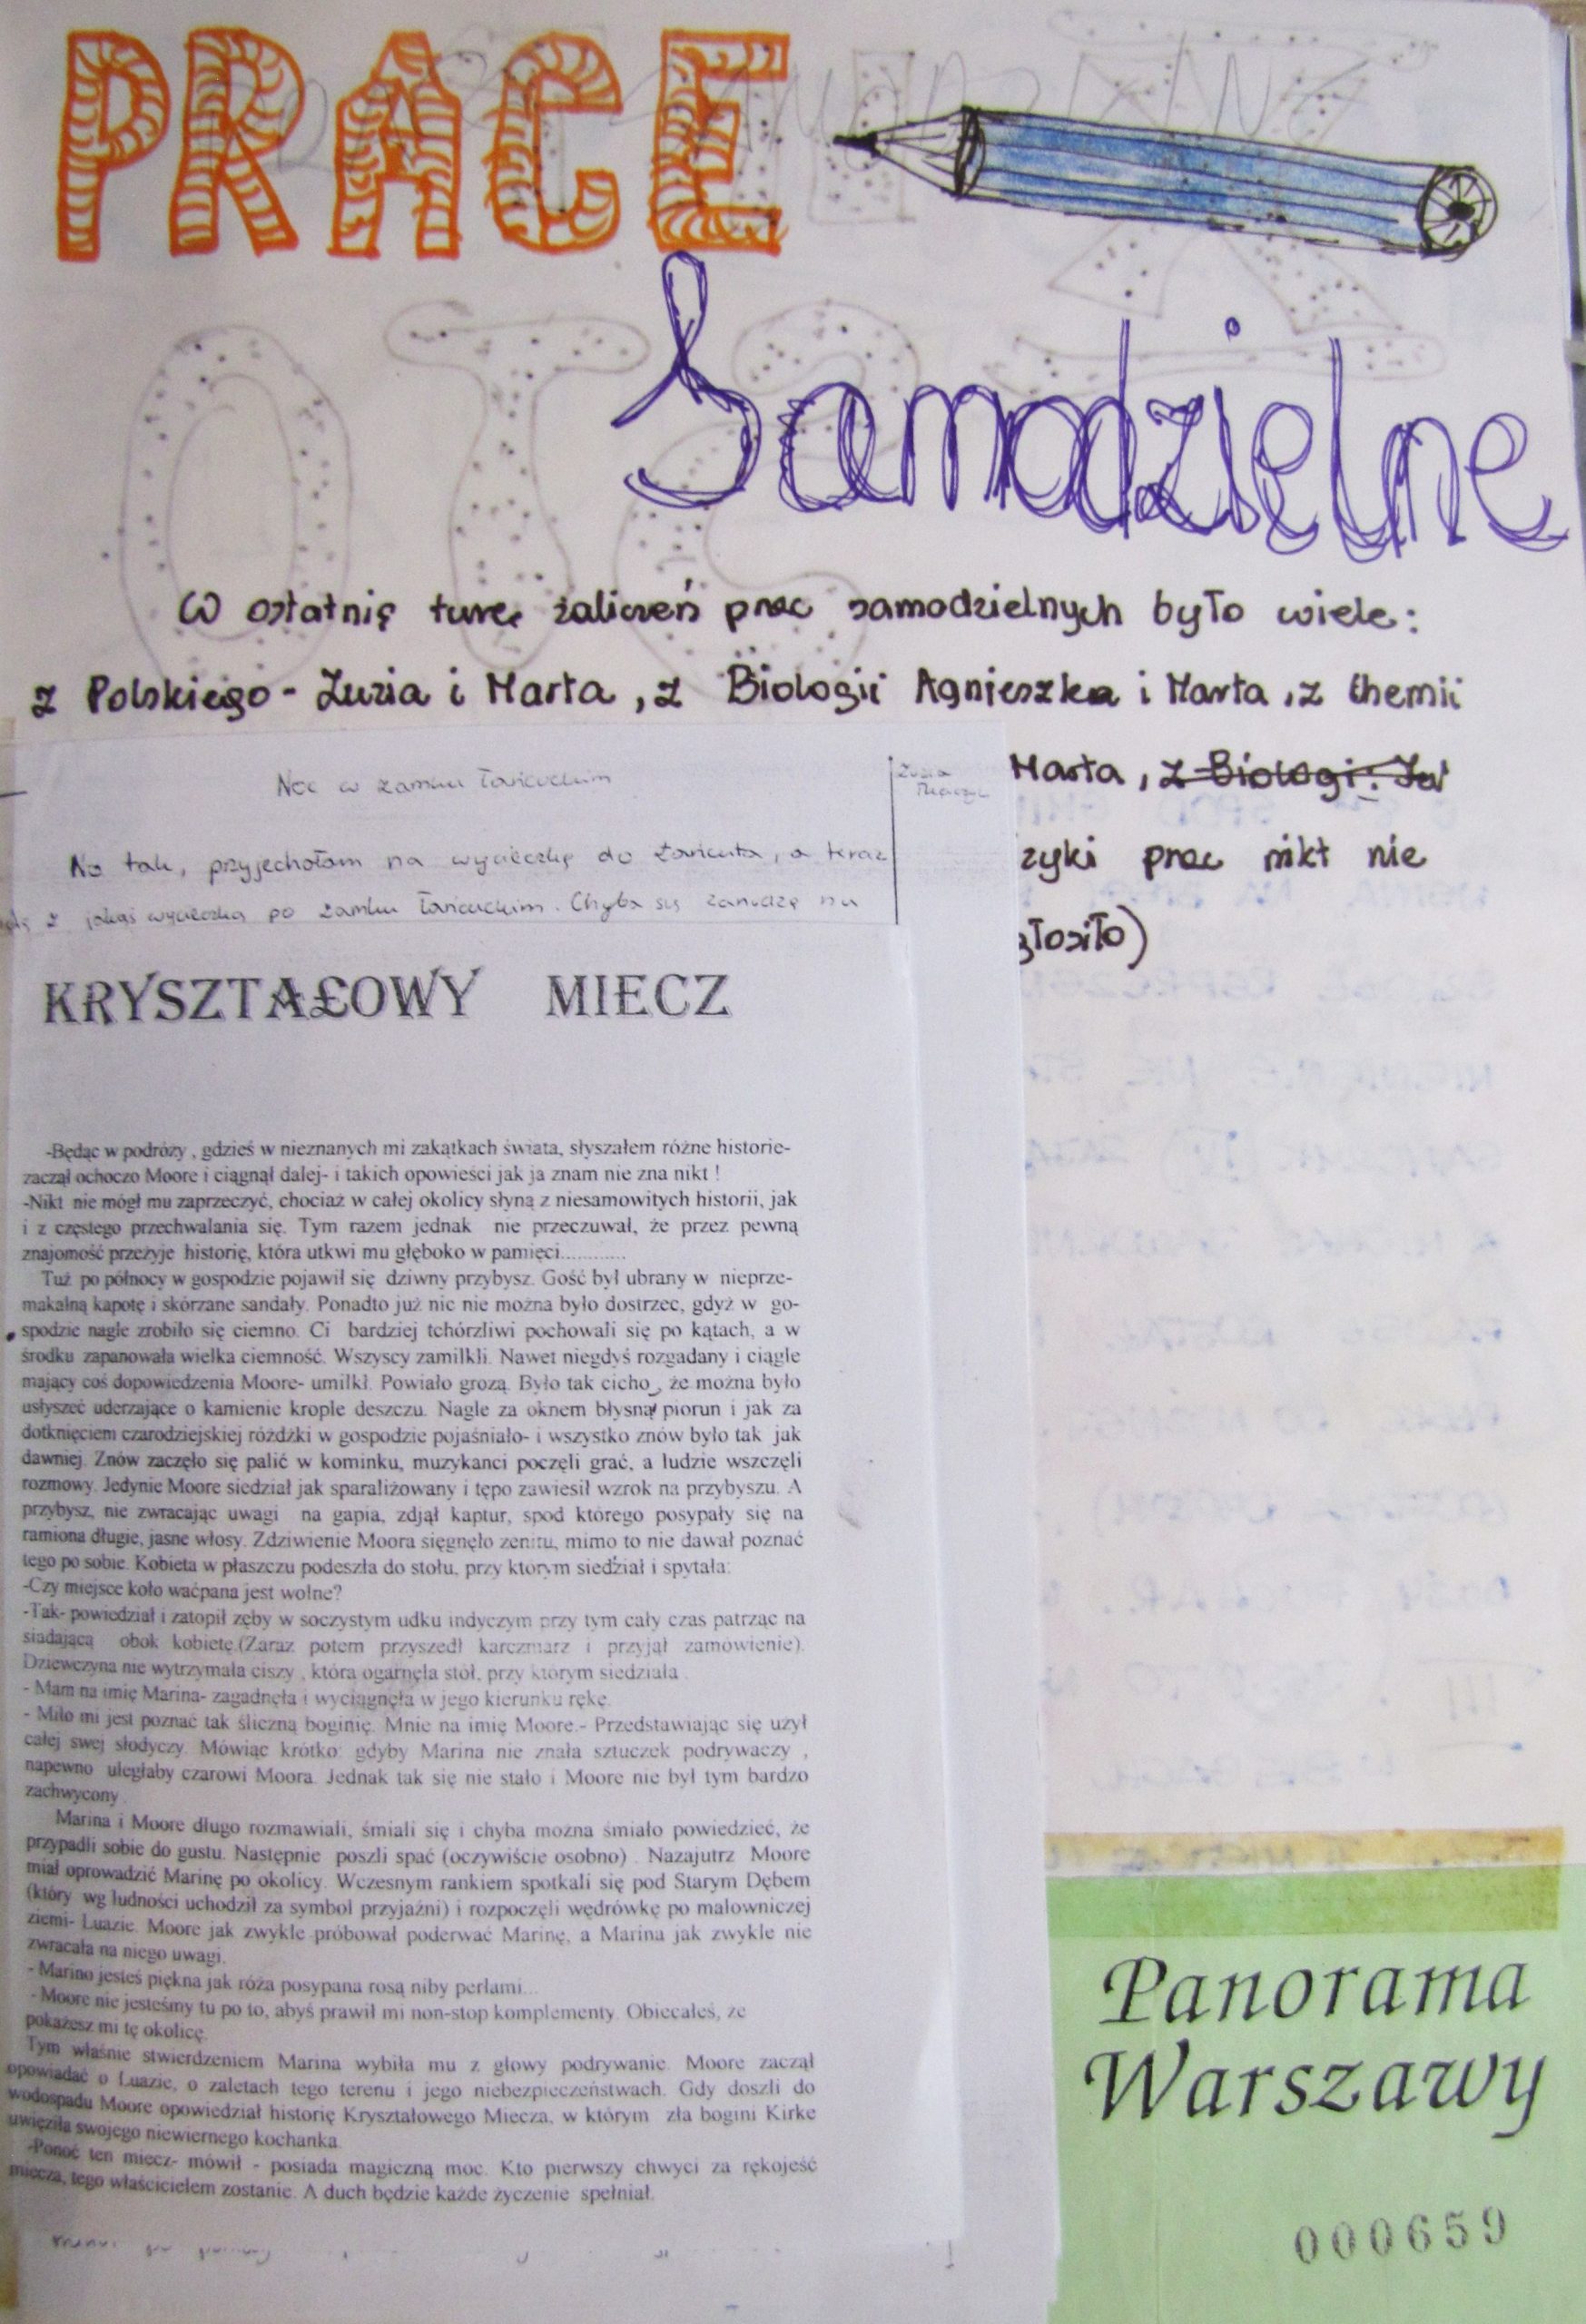 PRACE
Samodzielne
W ostatnię turę zaliczeń prac samodzielnych było wiele:
z Polskiego - Zuzia i Marta, z Biologii Agnieszka i Marta, z Chemii
Marta, z Biologi: Ja
zyki prac nikt nie
głosiło)
Noc w zamku łańcuckim
Zuzia
No tak, przyjechałam na wycieczkę do Łańcuta, a teraz
z jakąś wycieczką po zamku łańcuckim. Chyba się zanudzę na
KRYSZTA£OWY MIECZ
-Będąc w podróży , gdzieś w nieznanych mi zakątkach świata, słyszałem różne historie-
zaczął ochoczo Moore i ciągnął dalej- i takich opowieści jak ja znam nie zna nikt !
-Nikt nie mógł mu zaprzeczyć, chociaż w całej okolicy słyną z niesamowitych historii, jak
i z częstego przechwalania się. Tym razem jednak nie przeczuwał, że przez pewną
znajomość przeżyje historię, która utkwi mu głęboko w pamięci............
Tuż po północy w gospodzie pojawił się dziwny przybysz. Gość był ubrany w nieprze-
makalną kapotę i skórzane sandały. Ponadto już nic nie można było dostrzec, gdyż w go-
spodzie nagle zrobiło się ciemno. Ci bardziej tchórzliwi pochowali się po kątach, a w
środku zapanowała wielka ciemność. Wszyscy zamilkli. Nawet niegdyś rozgadany i ciągle
mający coś dopowiedzenia Moore- umilkł. Powiało grozą. Było tak cicho , że można było
usłyszeć uderzające o kamienie krople deszczu. Nagle za oknem błysnął piorun i jak za
dotknięciem czarodziejskiej różdżki w gospodzie pojaśniało- i wszystko znów było tak jak
dawniej. Znów zaczęło się palić w kominku, muzykanci poczęli grać, a ludzie wszczęli
rozmowy. Jedynie Moore siedział jak sparaliżowany i tępo zawiesił wzrok na przybyszu. A
przybysz, nie zwracając uwagi na gapia, zdjął kaptur, spod którego posypały się na
ramiona długie, jasne włosy. Zdziwienie Moora sięgnęło zenitu, mimo to nie dawał poznać
tego po sobie. Kobieta w płaszczu podeszła do stołu, przy którym siedział i spytała:
-Czy miejsce koło waćpana jest wolne?
-Tak- powiedział i zatopił zęby w soczystym udku indyczym przy tym cały czas patrząc na
siadającą obok kobietę.(Zaraz potem przyszedł karczmarz i przyjął zamówienie).
Dziewczyna nie wytrzymała ciszy , która ogarnęła stół, przy którym siedziała .
- Mam na imię Marina- zagadnęła i wyciągnęła w jego kierunku rękę.
- Miło mi jest poznać tak śliczną boginię. Mnie na imię Moore.- Przedstawiając się użył
całej swej słodyczy. Mówiąc krótko: gdyby Marina nie znała sztuczek podrywaczy ,
napewno uległaby czarowi Moora. Jednak tak się nie stało i Moore nie był tym bardzo
zachwycony.
Marina i Moore długo rozmawiali, śmiali się i chyba można śmiało powiedzieć, że
przypadli sobie do gustu. Następnie poszli spać (oczywiście osobno) . Nazajutrz Moore
miał oprowadzić Marinę po okolicy. Wczesnym rankiem spotkali się pod Starym Dębem
(który wg ludności uchodził za symbol przyjaźni) i rozpoczęli wędrówkę po malowniczej
ziemi- Luazie. Moore jak zwykle próbował poderwać Marinę, a Marina jak zwykle nie
zwracała na niego uwagi.
- Marino jesteś piękna jak róża posypana rosą niby perłami...
- Moore nie jesteśmy tu po to, abyś prawił mi non-stop komplementy. Obiecałeś, że
pokażesz mi tę okolicę.
Tym właśnie stwierdzeniem Marina wybiła mu z głowy podrywanie. Moore zaczął
opowiadać o Luazie, o zaletach tego terenu i jego niebezpieczeństwach. Gdy doszli do
wodospadu Moore opowiedział historię Kryształowego Miecza, w którym zła bogini Kirke
uwięziła swojego niewiernego kochanka.
-Ponoć ten miecz- mówił - posiada magiczną moc. Kto pierwszy chwyci za rękojeść
miecza, tego właścicielem zostanie. A duch będzie każde życzenie spełniał.
Panorama
Warszawy
000659